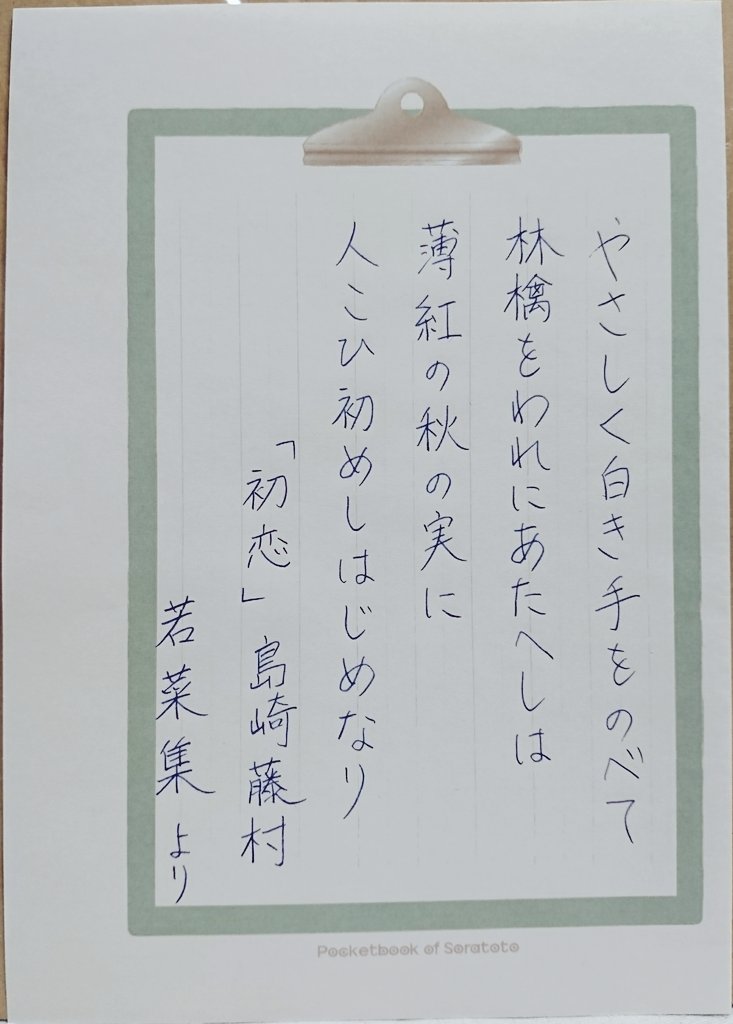 やさしく白き手をのべて
林檎をわれにあたへしは
薄紅の秋の実に
人こひ初めしはじめなり
「初恋」島崎藤村
若菜集より
Pocketbook of Soratoto